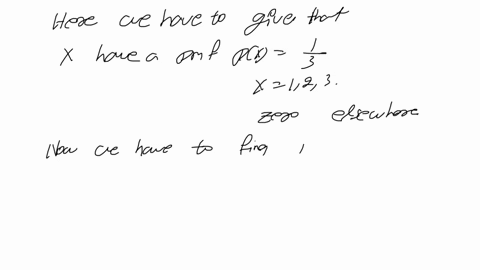 Here we have to give that
X have a pmf p(x) = 1/3
x = 1, 2, 3.
zero elsewhere
Now we have to find ,